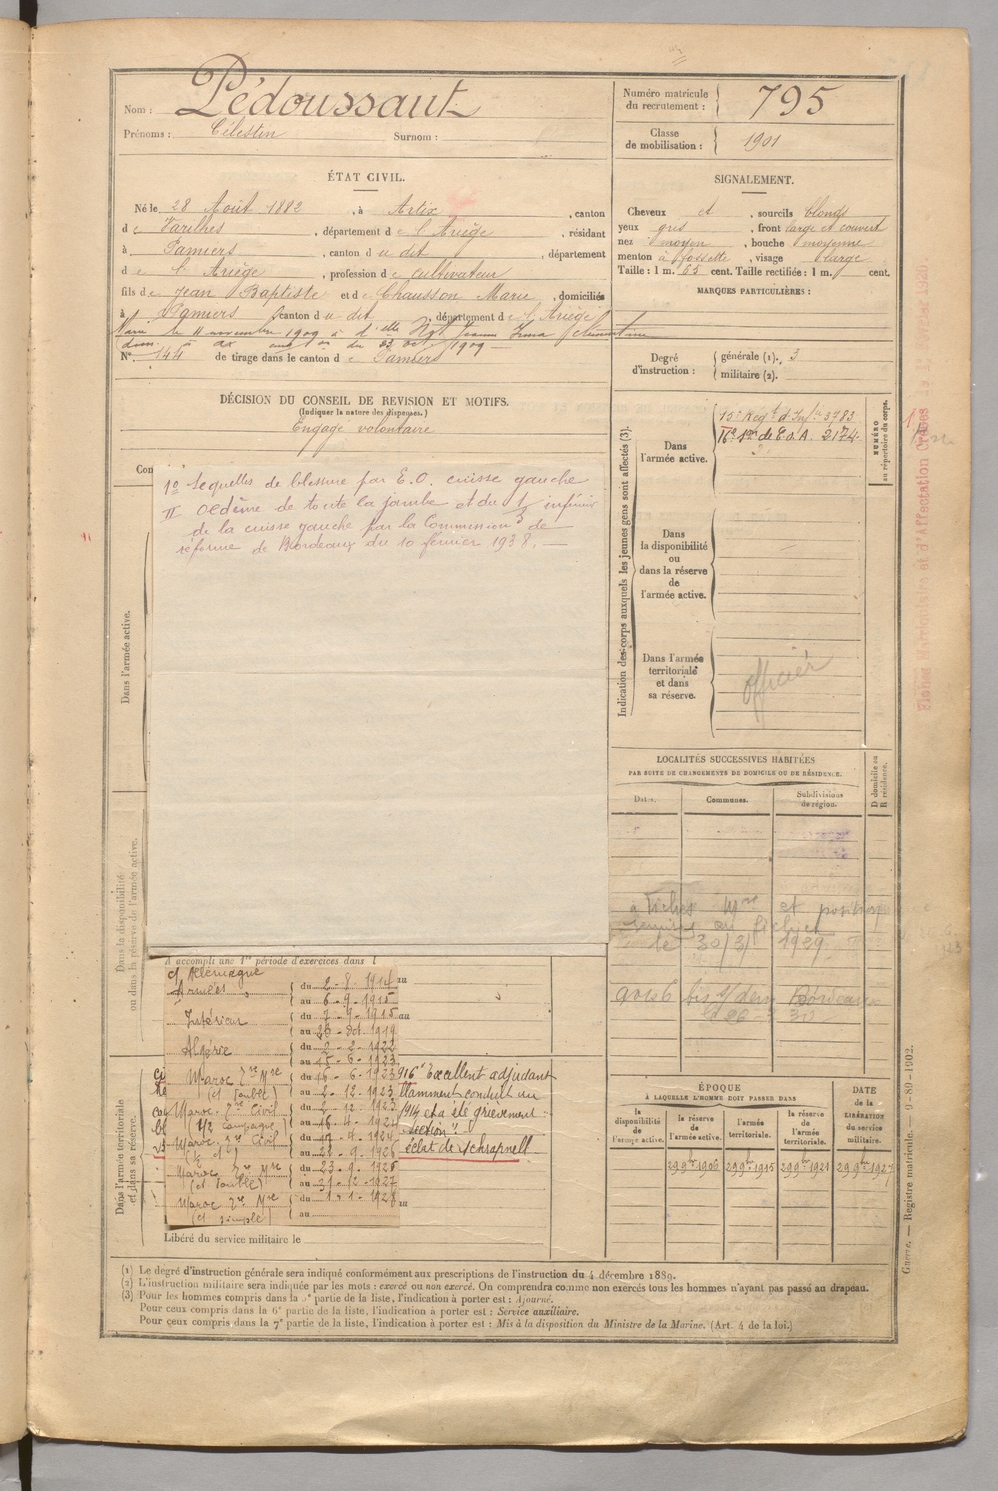 Nom : Pédoussaut
Prénoms : Célestin Surnom :
Numéro matricule du recrutement : 795
Classe de mobilisation : 1901
ÉTAT CIVIL.
Né le 28 Août 1882, à Artix, canton
de Varilhes, département de l'Ariège, résidant
à Pamiers, canton du dit, département
de l'Ariège, profession de cultivateur
fils de Jean Baptiste et de Chausson Marie, domiciliés
à Pamiers canton du dit, département de l'Ariège
Marié le 11 novembre 1909 à d'elle Jeanne Irma Clémentine
1909
N° 144 de tirage dans le canton de Pamiers
SIGNALEMENT.
Cheveux et, sourcils blonds
yeux gris, front large et couvert
nez moyen, bouche moyenne
menton à fossette, visage large
Taille : 1 m. 65 cent. Taille rectifiée : 1 m. cent.
MARQUES PARTICULIÈRES :
Degré d'instruction : générale (1). 3
militaire (2).
DÉCISION DU CONSEIL DE REVISION ET MOTIFS.
(Indiquer la nature des dispenses.)
Engagé volontaire
1° Sequelles de blessure par E.O. cuisse gauche
II Oedème de toute la jambe et du 1/3 inférieur
de la cuisse gauche par la Commission de
réforme de Bordeaux du 10 février 1938. —
Indication des corps auxquels les jeunes gens sont affectés (3).
Dans l'armée active.
15e Régt d'Inf. 3783
2174
Dans la disponibilité ou dans la réserve de l'armée active.
Dans l'armée territoriale et dans sa réserve.
officier
NUMÉRO au répertoire du corps.
LOCALITÉS SUCCESSIVES HABITÉES
PAR SUITE DE CHANGEMENTS DE DOMICILE OU DE RÉSIDENCE.
Dates. Communes. Subdivisions de région. D domicile ou R résidence.
Fiches Mre et position
remises au fichier
le 30/3/1929
Bordeaux
Dans l'armée active.
Dans la disponibilité ou dans la réserve de l'armée active.
Dans l'armée territoriale et dans sa réserve.
A accompli une 1re période d'exercices dans l
c/ Allemagne
Armées du 2-8-1914
au 6-9-1915
Intérieur du 7-9-1915
au 26 Oct 1919
Algérie du 2-2-1922
au 15-6-1923
Maroc 7re Mre du 16-6-1923
(et double) au 2-12-1923
Maroc 7re Civil du 2-12-1923
(1/2 campagne) au 16-4-1924
Maroc 7re Civil du 17-4-1924
au 22-9-1925
Maroc 7re Mre du 23-9-1925
(et double) au 31-12-1927
Maroc 7re Mre du 1-1-1928
(et simple) au
916 "Excellent adjudant
conduit
1914 et a été grièvement
section"
éclat de Schrapnell
Libéré du service militaire le
ÉPOQUE
À LAQUELLE L'HOMME DOIT PASSER DANS
la disponibilité de l'armée active. la réserve de l'armée active. l'armée territoriale. la réserve de l'armée territoriale. DATE de la LIBÉRATION du service militaire.
29 9bre 1906 29 9bre 1915 29 9bre 1921 29 9bre 1927
(1) Le degré d'instruction générale sera indiqué conformément aux prescriptions de l'instruction du 4 décembre 1889.
(2) L'instruction militaire sera indiquée par les mots : exercé ou non exercé. On comprendra comme non exercés tous les hommes n'ayant pas passé au drapeau.
(3) Pour les hommes compris dans la 5e partie de la liste, l'indication à porter est : Ajourné.
Pour ceux compris dans la 6e partie de la liste, l'indication à porter est : Service auxiliaire.
Pour ceux compris dans la 7e partie de la liste, l'indication à porter est : Mis à la disposition du Ministre de la Marine. (Art. 4 de la loi.)
Guerre. — Registre matricule. — 9-89-1902.